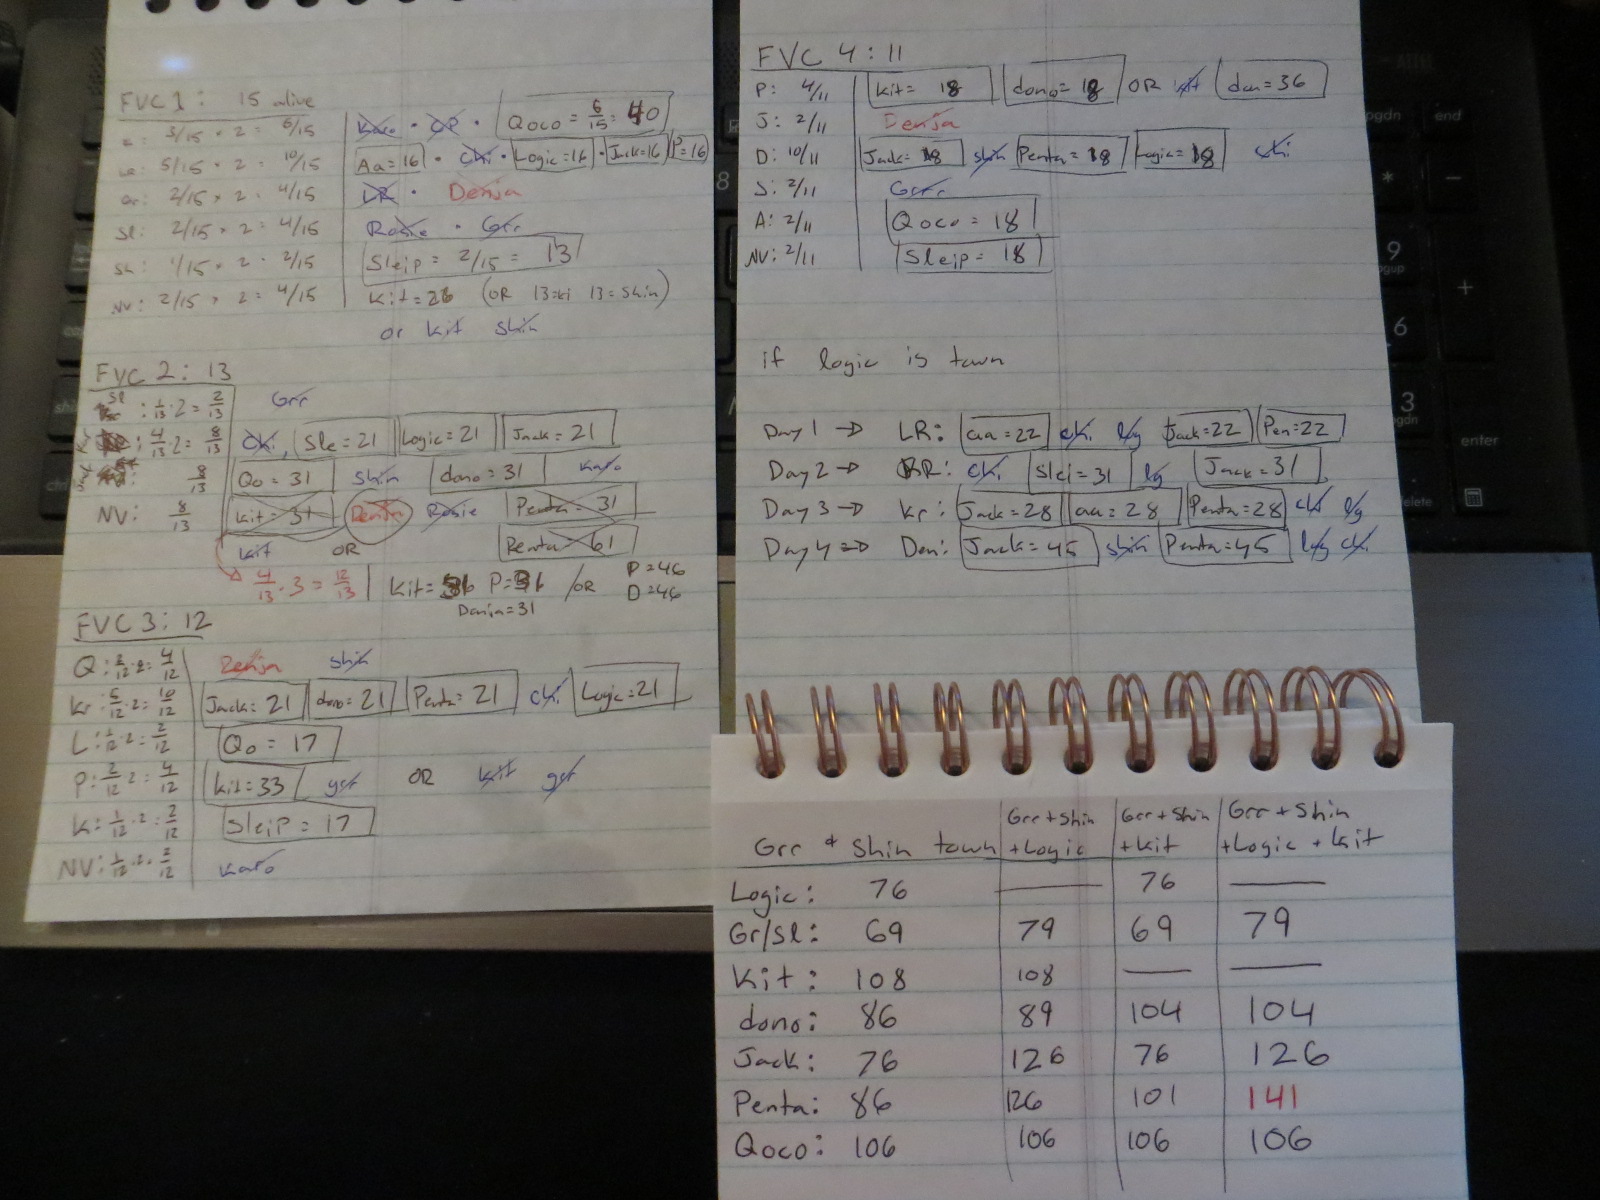 FVC 1: 15 alive
3/15 · 2 = 6/15 Kato · OP · Qoco = 6/15 = 40
5/15 · 2 = 10/15 Aa=16 · cki · Logic=16 · Jack=16 P=16
2/15 · 2 = 4/15 LR · Denja
Sl: 2/15 · 2 = 4/15 Rosie · Grr
Sh: 1/15 · 2 = 2/15 Sleip = 2/15 = 13
NV: 2/15 · 2 = 4/15 Kit=26 (OR 13=ki 13=shin)
or kit shin
FVC 2: 13
Sl : 1/13 · 2 = 2/13 Grr
: 4/13 · 2 = 8/13 cki, Sle=21 Logic=21 Jack=21
8/13 Qo = 31 shin dono=31 kato
NV: 8/13 kit=31 Denja Rosie Penta=31
kit OR Penta=61
4/13 · 3 = 12/13 Kit= P= /OR P=46
Denja=31 D=46
FVC 3: 12
Q: 2/12 · 2 = 4/12 Denja shin
Kr: 5/12 · 2 = 10/12 Jack=21 dono=21 Penta=21 cki Logic=21
L: 1/12 · 2 = 2/12 Qo = 17
P: 2/12 · 2 = 4/12 kit=33 grr OR kit grr
K: 1/12 · 2 = 2/12 Sleip = 17
NV: 1/12 · 2 = 2/12 kato
FVC 4: 11
P: 4/11 kit= 18 dono= 18 OR kit don=36
J: 2/11 Denja
D: 10/11 Jack= 18 shin Penta=18 Logic=18 cki
S: 2/11 Grrr
A: 2/11 Qoco = 18
NV: 2/11 Sleip = 18
if logic is town
Day 1 → LR: aa=22 cki lg Jack=22 Pen=22
Day 2 → RR: cki Slei=31 lg Jack=31
Day 3 → Kr: Jack=28 aa=28 Penta=28 cki lg
Day 4 → Den: Jack=45 shin Penta=45 log cki
Grr + Shin town Grr+Shin +Logic Grr+Shin +Kit Grr+Shin +Logic+Kit
Logic: 76 — 76 —
Gr/Sl: 69 79 69 79
Kit: 108 108 — —
dono: 86 89 104 104
Jack: 76 126 76 126
Penta: 86 126 101 141
Qoco: 106 106 106 106
8
*
−
9
pgup
+
6
3
pgdn
enter
delete
pgdn
end